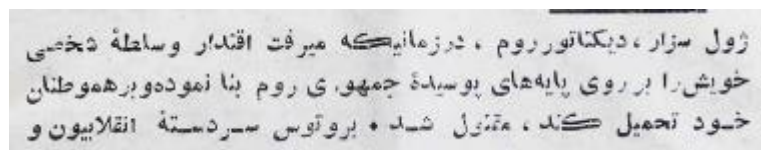 ژول سزار ، دیکتاتور روم ، درزمانیکه میرفت اقتدار وسلطهٔ شخصی
خویش را بر روی پایه‌های پوسیدهٔ جمهوری روم بنا نموده‌وبرهموطنان
خود تحمیل کند ، مقتول شد . بروتوس سردستهٔ انقلابیون و